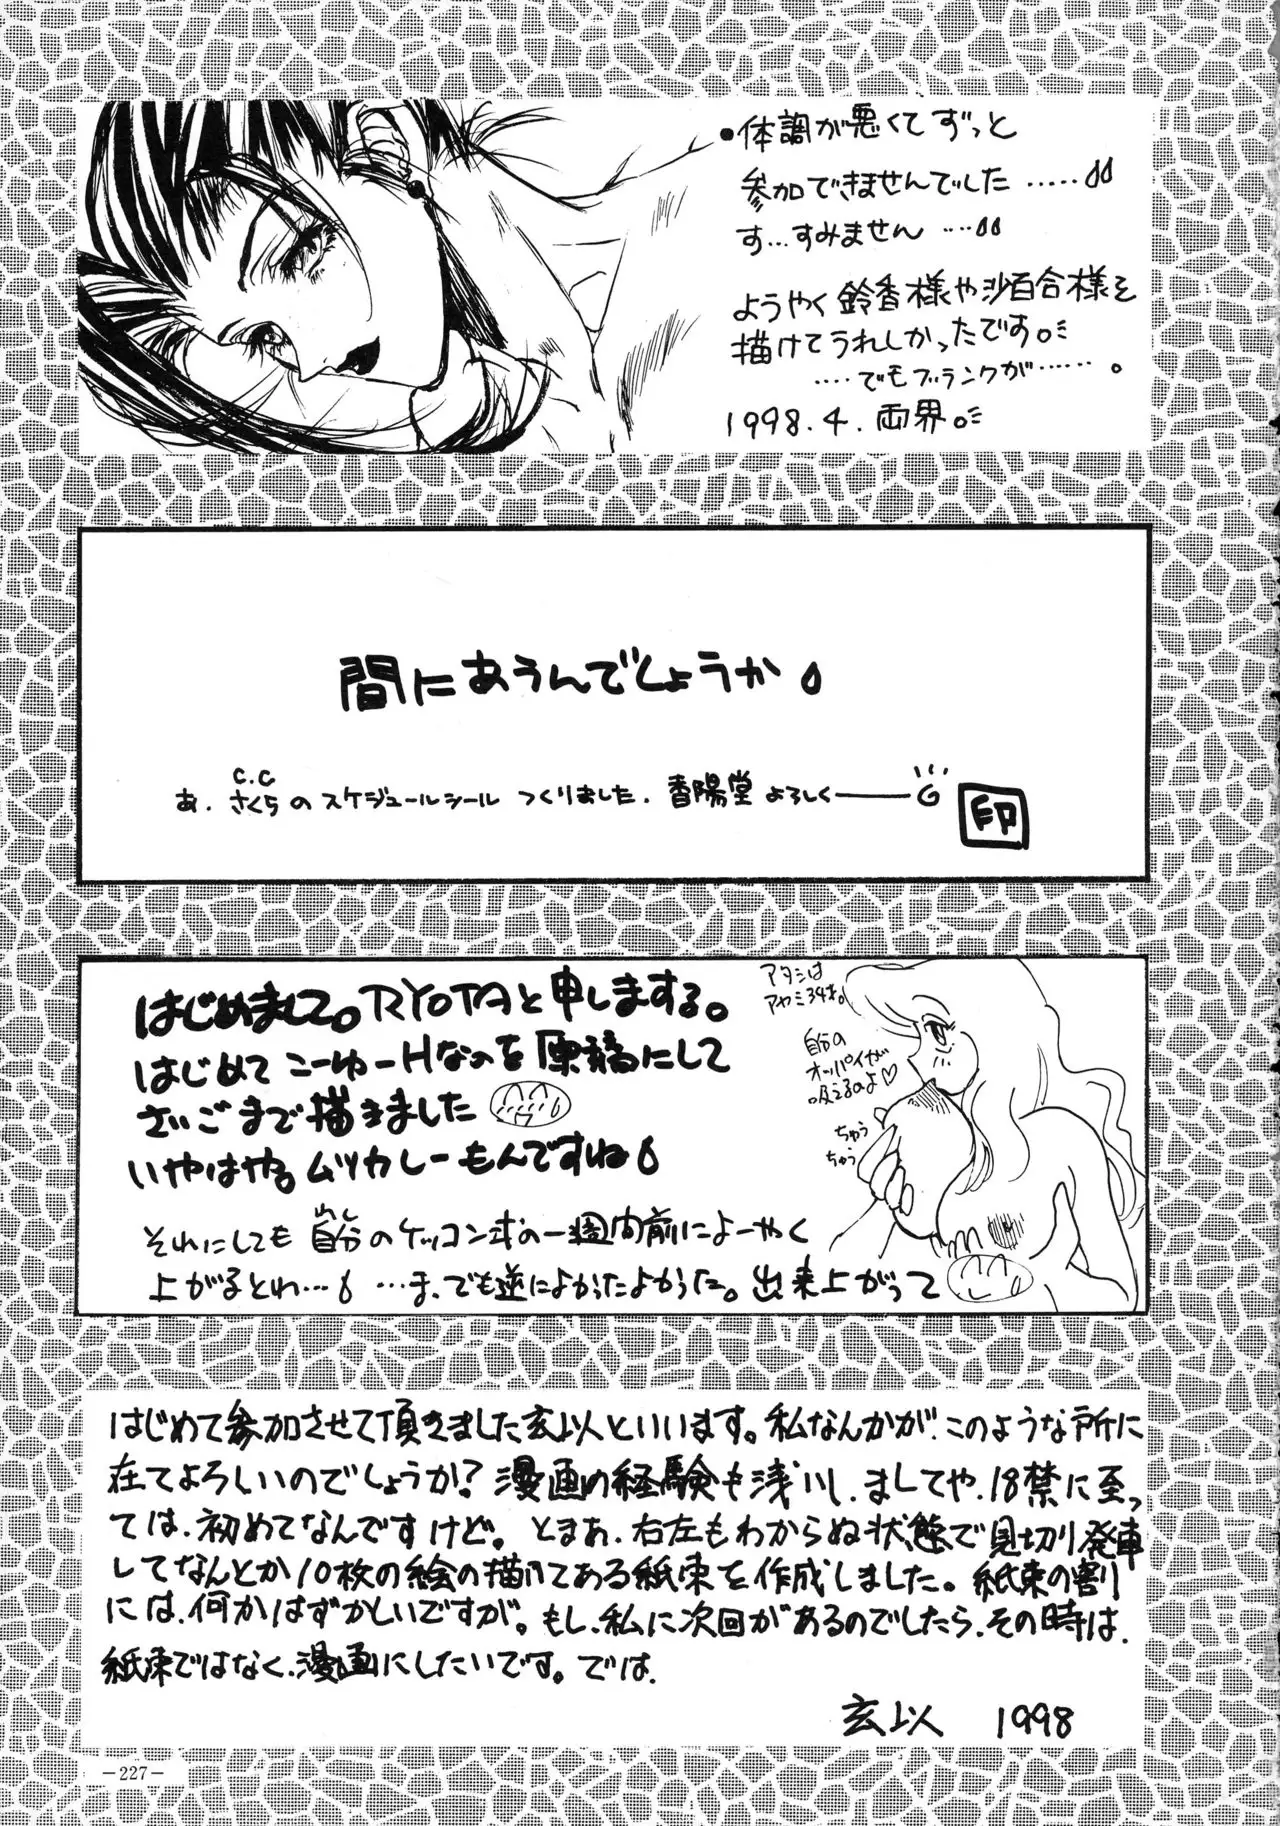 •体調が悪くてずっと
参加できませんでした……
す…すみません…
ようやく鈴香様や沙百合様を
描けてうれしかったです。
……でもブランクが……。
1998.4.両界。
間にあうんでしょうか
C.C
あ.さくらのスケジュールシールつくりました.香陽堂よろしく――
印
はじめまして。RYOTAと申しまする。
はじめてこーゆーHなのを原稿にして
さいごまで描きました
いやはや。ムツカシーもんですね
それにしても自分のケッコン式の一週間前によーやく
上がるとわ… …ま、でも逆によかったよかった。出来上がって
アタシは
アヤミ34才。
自分の
オッパイが
吸えるのよ♡
ちゅう
ちゅう
はじめて参加させて頂きました玄以といいます。私なんかが、このような所に
在てよろしいのでしょうか?漫画の経験も浅いし、ましてや、18禁に至っ
ては、初めてなんですけど。とまぁ、右左もわからぬ状態で見切り発車
してなんとか10枚の絵の描いてある紙束を作成しました。紙束の割り
には、何かはずかしいですが。もし、私に次回があるのでしたら、その時は、
紙束ではなく、漫画にしたいです。では、
玄以 1998
―227―